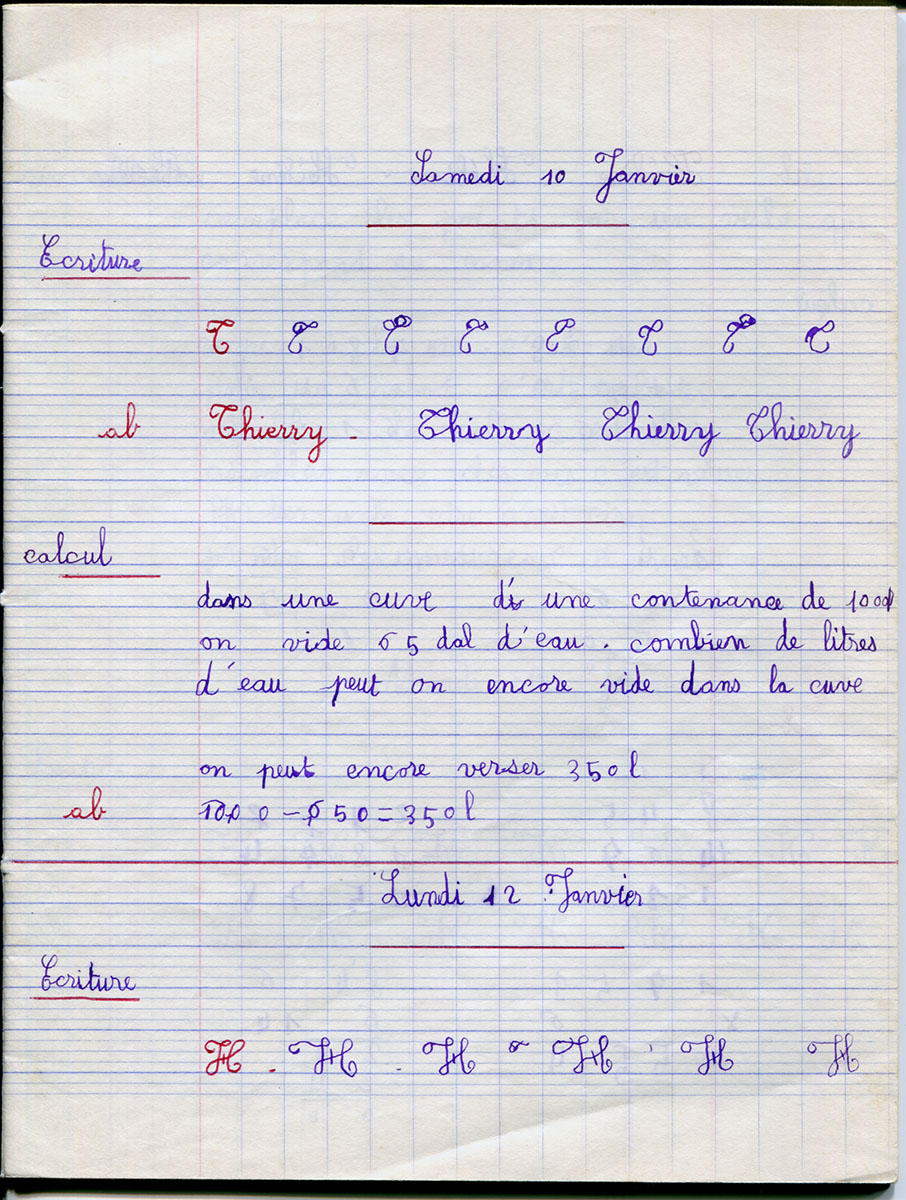 Samedi 10 Janvier
Ecriture
T T T T T T T T
ab Thierry - Thierry Thierry Thierry
calcul
dans une cuve d'i une contenance de 1000l
on vide 65 dal d'eau . combien de litres
d'eau peut on encore vide dans la cuve
on peut encore verser 350l
ab 1000 - 650 = 350l
Lundi 12 Janvier
Ecriture
H . H . H H H H